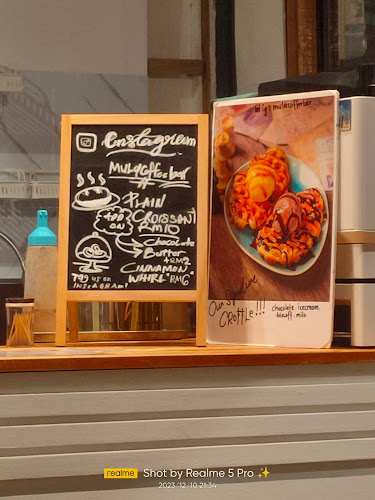 Instagram
MULACOffeebar
PLAIN
CROISSANT
RM10
ADD
ON
Chocolate
Butter
+RM2
CINNAMON
WHIRL RM6
TAG US ON
INSTAGRAM!
CROFFLE!!!
chocolate. icecream.
biscoff. milo.
realme
Shot by Realme 5 Pro ✨
2023/12/10 21:34